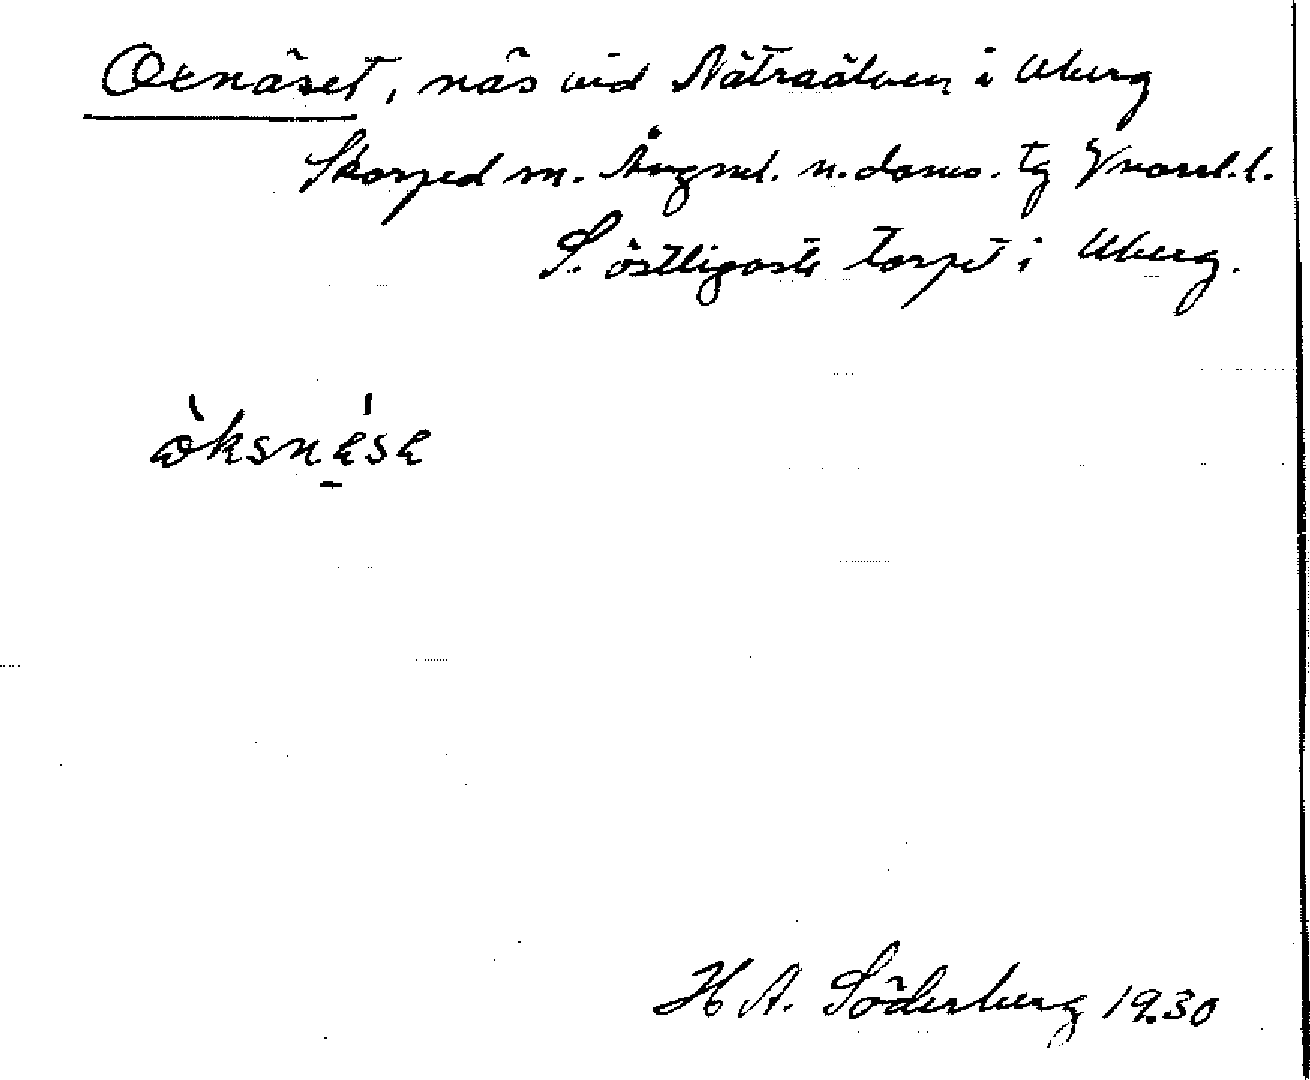 Oxnäset, näs vid Nätraälven i Uberg
Skorped sn. Ångml. n. doms. tg V norrl. l.
S. östligaste torpet i Uberg.
öksnése
H A. Söderberg 1930